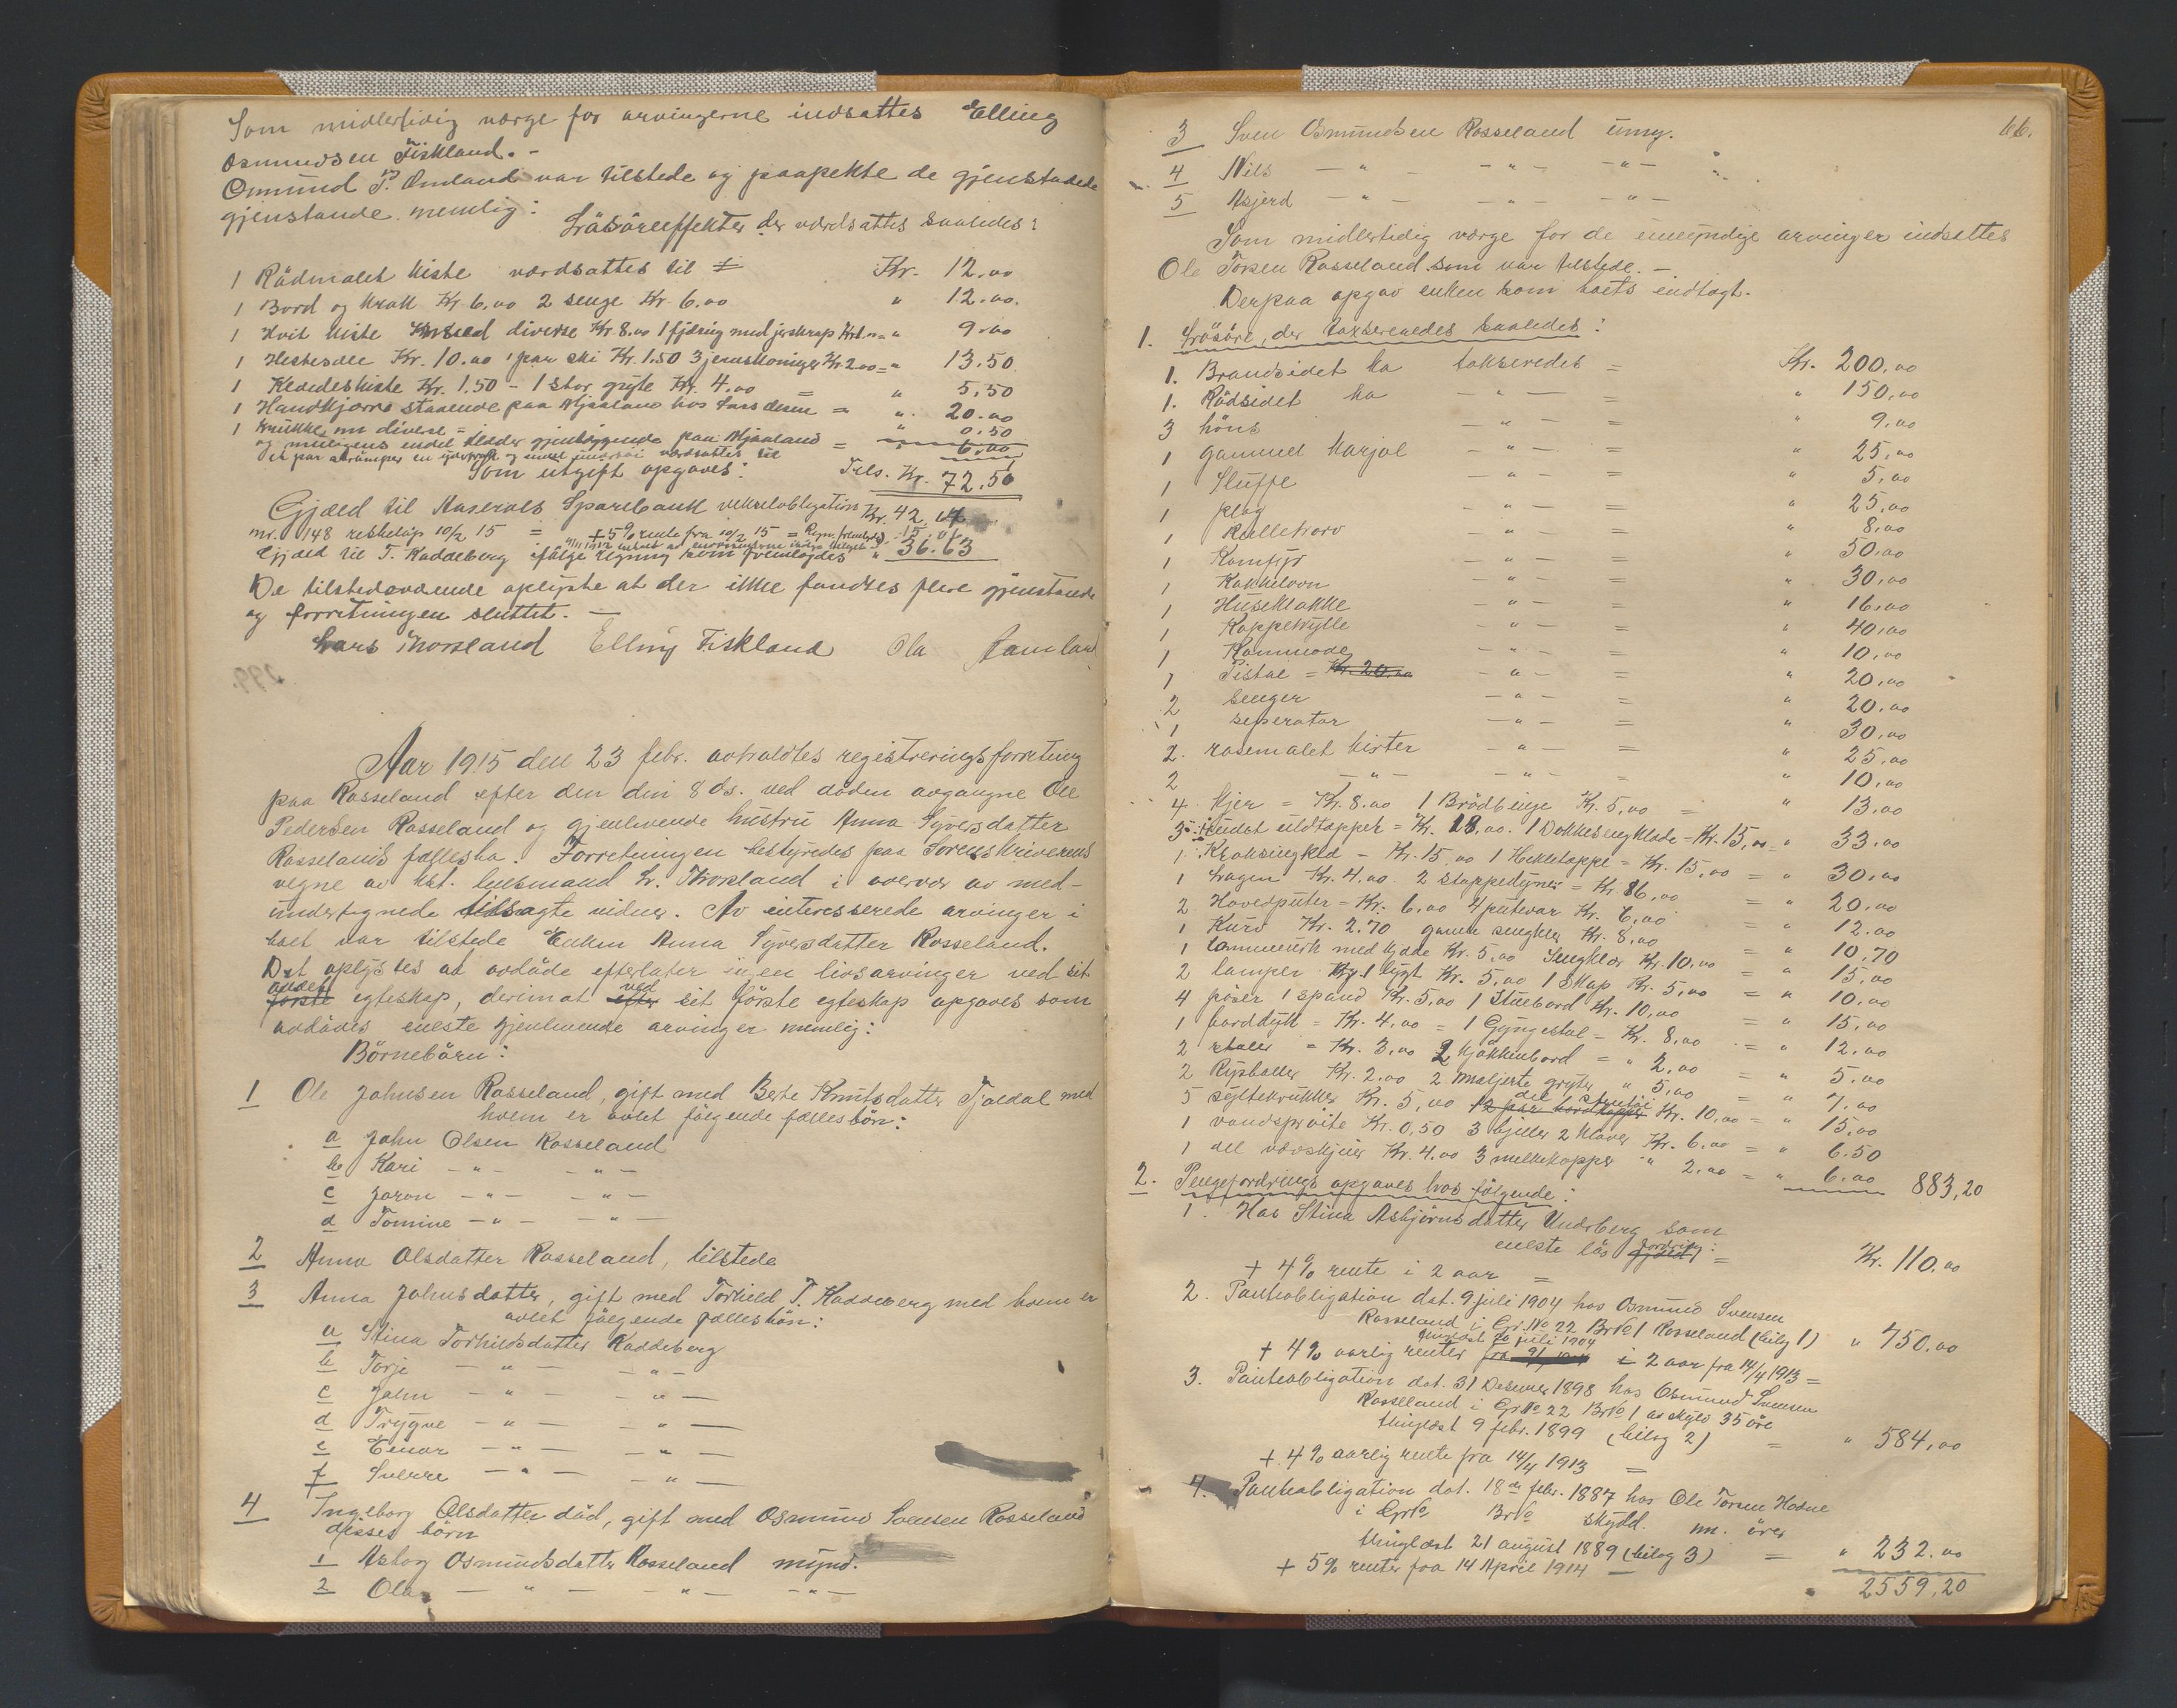 Som midlertidig værge for arvingerne indsattes Elling
Osmundsen Fiskland. -
Omund P. Omland var tilstede og paapekte de gjenstaaende
gjenstande nemlig:
Lösöreeffekter der værdsattes saaledes:
1 Rödmalet kiste værdsattes til Kr. 12.00
1 Bord og krak Kr. 6.00 2 senge Kr. 6.00 " 12.00.
1 Hvit kiste med diverse Kr. 8.00 1 fjæring med jerskrap Kr. 1.00 = " 9.00
1 Hestesæle Kr. 10.00 1 par ski Kr. 1.50 3 jernskoninger Kr. 2.00 = " 13.50
1 Klædeskiste Kr. 1.50 - 1 stor gryte Kr. 4.00 = " 5.50
1 Handkjærre staaende paa Mjaaland hos = " 20.00
1 krukke m diverse = " 0.50
og muligens endel klæder gjenliggende paa Mjaaland = " 6.00
værdsattes til
Som utgift opgaves: Tils. Kr. 72.50
Gjæld til Aaserals Sparebank vekselobligation Kr. 42.
nr. 148 restkeløp 10/2 15 = + 5% rente fra 10/2 15 =
Gjæld til T. Kaddeberg ifølge regning som fremlagdes " 36.63
De tilstedeværende oplyste at der ikke fandtes flere gjenstande
og forretningen sluttet. -
Lars Thorsland Elling Fiskland Ola Aamland
Aar 1915 den 23 febr. avholdtes registreringsforretning
paa Rosseland efter den den 8 ds. ved døden avgangne Ole
Pedersen Rosseland og gjenlevende hustru Anna Syversdatter
Rosselands fællesbo. Forretningen bestyredes paa Sorenskriverens
vegne av kst. lensmand L. Thorsland i overvær av med-
undertegnede tilsagte vidner. Av interesserede arvinger i
boet var tilstede Enken Anna Syversdatter Rosseland.
Det oplystes at avdøde efterlater ingen livsarvinger ved sit
andet
første egteskap, derimot efter ved sit første egteskap opgaves som
avdødes eneste gjenlevende arvinger nemlig:
Börnebörn:
1 Ole Johnsen Rosseland, gift med Berte Knutsdatter Tjaldal med
hvem er avlet følgende fællesbörn:
a John Olsen Rosseland
b Kari - " - - " -
c Joron - " - - " -
d Tomine - " - - " -
2 Anna Olsdatter Rosseland, tilstede
3 Anna Johnsdatter, gift med Torkild T. Kaddeberg med hvem er
avlet følgende fællesbörn:
a Stina Torkildsdatter Kaddeberg
b Torje - " - - " -
c John - " - - " -
d Trygve - " - - " -
e Einar - " - - " -
f Sverre - " - - " -
4 Ingeborg Olsdatter død, gift med Osmund Svensen Rosseland
disses børn
1 Asborg Osmundsdatter Rosseland mynd.
2 Ola - " - - " - - " -
66.
3 Sven Osmundsen Rosseland umy.
4 Nils - " - - " - - " -
5 Asjerd - " - - " - - " -
Som midlertidig værge for de umyndige arvinger indsattes
Ole Torsen Rosseland som var tilstede. -
Derpaa opgav enken som boets indtægt.
1. Lösöre, der taxserenedes saaledes:
1. Brandsidet ko takseredes = Kr. 200.00
1. Rödsidet ko - " - = " 150.00
3 höns - " - = " 9.00
1 gammel karjol - " - = " 25.00
1 Sluffe - " - = " 5.00
1 plog - " - = " 25.00
1 Rulleharv - " - = " 8.00
1 Komfyr - " - = " 50.00
1 Kakkelovn - " - = " 30.00
1 Huseklokke - " - = " 16.00
1 Koppehylle - " - = " 40.00
1 Kommode - " - = " 10.00
1 Pistol = Kr. 20.00 - " - = " 20.00
2 senger - " - = " 20.00
1 seperator - " - = " 30.00
2. rosemalet kister - " - = " 25.00
2 - " - - " - = " 10.00
4 kjer = Kr. 8.00 1 Brödbinge Kr. 5.00 = " 13.00
3 uldtepper = Kr. 18.00. 1 Dokkesengklæde = Kr. 15.00 = " 33.00
1 - Kr. 15.00 1 Hekleteppe = Kr. 15.00 = " 30.00
1 Lagen Kr. 4.00 2 stoppedyner = Kr. 16.00 = " 20.00
2 Hovedputer = Kr. 6.00 4 putevar Kr. 6.00 = " 12.00
1 Kurv Kr. 2.70 gamle sengklær Kr. 8.00 = " 10,70
1 lommeurh med kjæde Kr. 5.00 Sengklær Kr. 10.00 = " 15.00
2 lamper 1 lygt Kr. 5.00 1 Skap Kr. 5.00 = " 10.00
4 pöser 1 spand Kr. 5.00 1 Stuebord Kr. 10.00 = " 15.00
1 borddyk = Kr. 4.00 = 1 Gyngestol = Kr. 8.00 = " 12.00
2 stoler = Kr. 3.00 2 kjökkenbord = " 2.00 = " 5.00
2 Kr. 2.00 2 emaljerte gryter " 5.00 = " 7.00
5 syltekrukker Kr. 5.00 Kr. 10.00 = " 15.00
1 vandspröite Kr. 0.50 3 bjeller 2 klaver Kr. 6.00 = " 6.50
1 del Kr. 4.00 3 melkekopper " 2.00 = " 6.00 883,20
2. Pengefordrings opgaves hos følgende:
1. Hos Stina Asbjørnsdatter Underberg som
eneste lös fordring: = Kr. 110.00
+ 4% rente i 2 aar =
2. Panteobligation dat. 9 juli 1904 hos Osmund Svensen
Rosseland i Gr.No 22 BrNo 1 Rosseland (bilag 1) " 750.00
tinglæst 20 juli 1904
+ 4% aarlig renter i 2 aar fra 14/4 1913 =
3. Panteobligation dat. 31 Desember 1898 hos Osmund Svensen
Rosseland i Gr.No 22 BrNo 1 av skyld 35 øre
thinglæst 9 febr. 1899 (bilag 2) = " 584.00
+ 4% aarlig rente fra 14/4 1913 =
4. Panteobligation dat. 18de febr. 1887 hos Ole Torsen
i GrNo BrNo skyld m. öre
thinglæst 21 august 1889 (bilag 3) = " 232.00
+ 5% renter fra 14 April 1914 - 2559,20